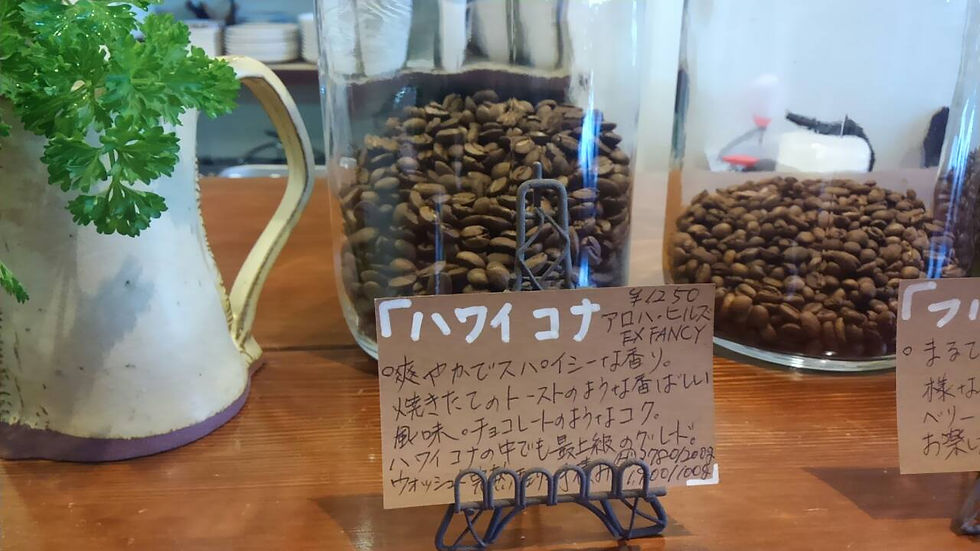 「ハワイ コナ
¥1250
アロハ・ヒルズ
EX FANCY
○爽やかでスパイシーな香り。
焼きたてのトーストのような香ばしい
風味。チョコレートのようなコク。
ハワイコナの中でも最上級のグレード。
ウォッシュ
3780/200g
1,900/100g
「フ
○まるで
様な
ベリー
お楽し